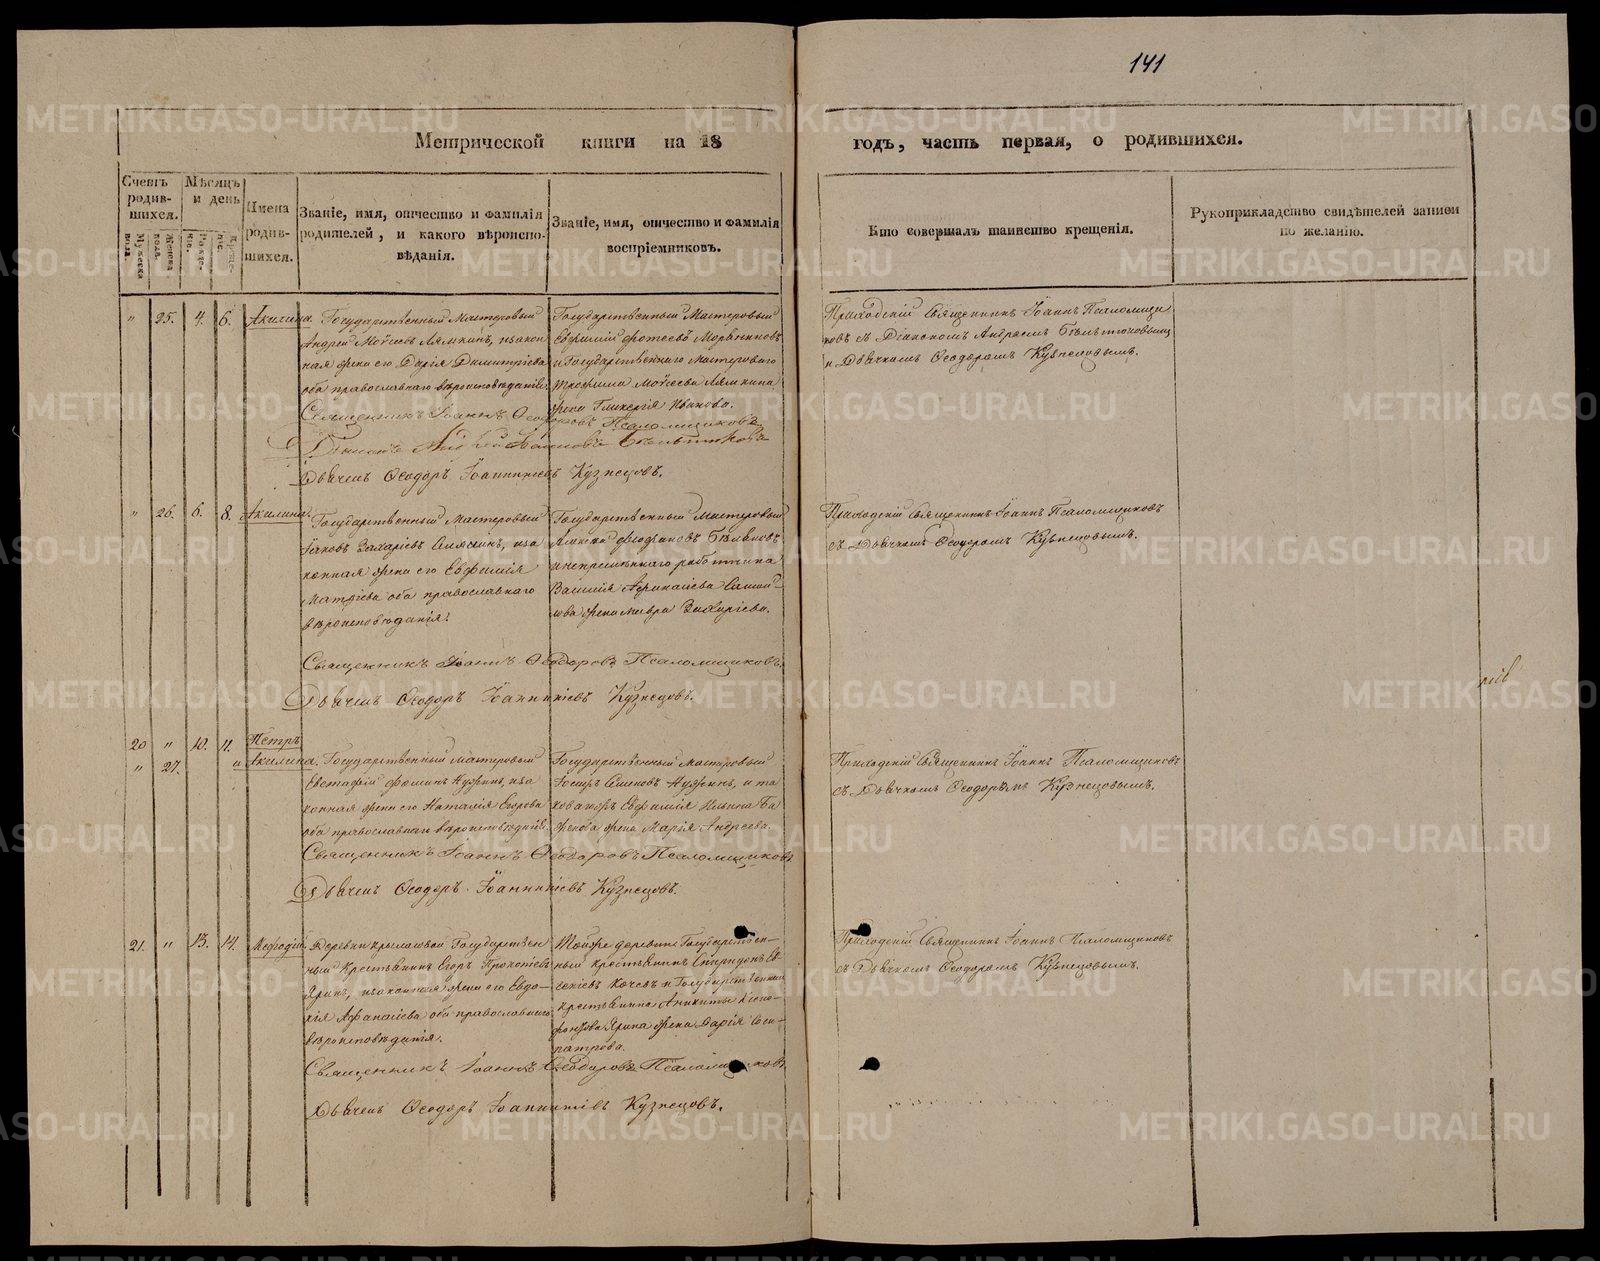 141
Метрической книги на 18 годъ, часть первая, о родившихся.
Счетъ родившихся.
Мужеска пола.
Женска пола.
Мѣсяцъ и день
Рожденія.
Крещенія.
Имена родившихся.
Званіе, имя, отчество и фамилія родителей, и какого вѣроисповѣданія.
Званіе, имя, отчество и фамилія воспріемниковъ.
Кто совершалъ таинство крещенія.
Рукоприкладство свидѣтелей записи по желанію.
" 25. 4. 6. Акилина.
Государственный Мастеровый
Андрей Моѵсеевъ Лямкинъ, и закон
ная жена его Дарія Димитріева
оба православнаго вѣроисповѣданія.
Государственный Мастеровый
Евфимій
и Государственнаго Мастероваго
Трофима Моѵсеева Лямкина
жена Гликерія Иванова.
Приходскій Священникъ Іоаннъ Псаломщи
ковъ съ Діакономъ Андреемъ
и Дьячкомъ Ѳеодоромъ Кузнецовымъ.
Священникъ Іоаннъ Ѳеодоровъ Псаломщиковъ
Дьячекъ Ѳеодоръ Іоанникіевъ Кузнецовъ.
" 26. 6. 8. Акилина.
Государственный Мастеровый
Іаковъ Захаріевъ и за
конная жена его Евфимія
оба православнаго
вѣроисповѣданія.
Государственный Мастеровый
и непремѣннаго работника
жена Мавра Захаріева.
Приходскій Священникъ Іоаннъ Псаломщиковъ
съ Дьячкомъ Ѳеодоромъ Кузнецовымъ.
Священникъ Іоаннъ Ѳеодоровъ Псаломщиковъ
Дьячекъ Ѳеодоръ Іоанникіевъ Кузнецовъ.
20 " 10. 11. Петръ
" 27. и Акилина.
Государственный Мастеровый
Евстафій Ѳоминъ и за
конная жена его Наталія Егорова
оба православнаго вѣроисповѣданія.
Государственный Мастеровый
и та
коваго жъ Евфимія Ильина
жена Марія Андреева.
Приходскій Священникъ Іоаннъ Псаломщиковъ
съ Дьячкомъ Ѳеодоромъ Кузнецовымъ.
Священникъ Іоаннъ Ѳеодоровъ Псаломщиковъ
Дьячекъ Ѳеодоръ Іоанникіевъ Кузнецовъ.
21. " 13. 14. Меѳодій.
Деревни Крылатовой Государствен
ный Крестьянинъ Егоръ Прокопіевъ
Яринъ, и законная жена его Евдо-
кія Аѳанасіева оба православнаго
вѣроисповѣданія.
Тойже деревни Государствен-
ный крестьянинъ Спиридонъ
и Государственнаго
крестьянина Аникиты
Ярина жена Дарія
Приходскій Священникъ Іоаннъ Псаломщиковъ
съ Дьячкомъ Ѳеодоромъ Кузнецовымъ.
Священникъ Іоаннъ Ѳеодоровъ Псаломщиковъ
Дьячекъ Ѳеодоръ Іоанникіевъ Кузнецовъ.
METRIKI.GASO-URAL.RU